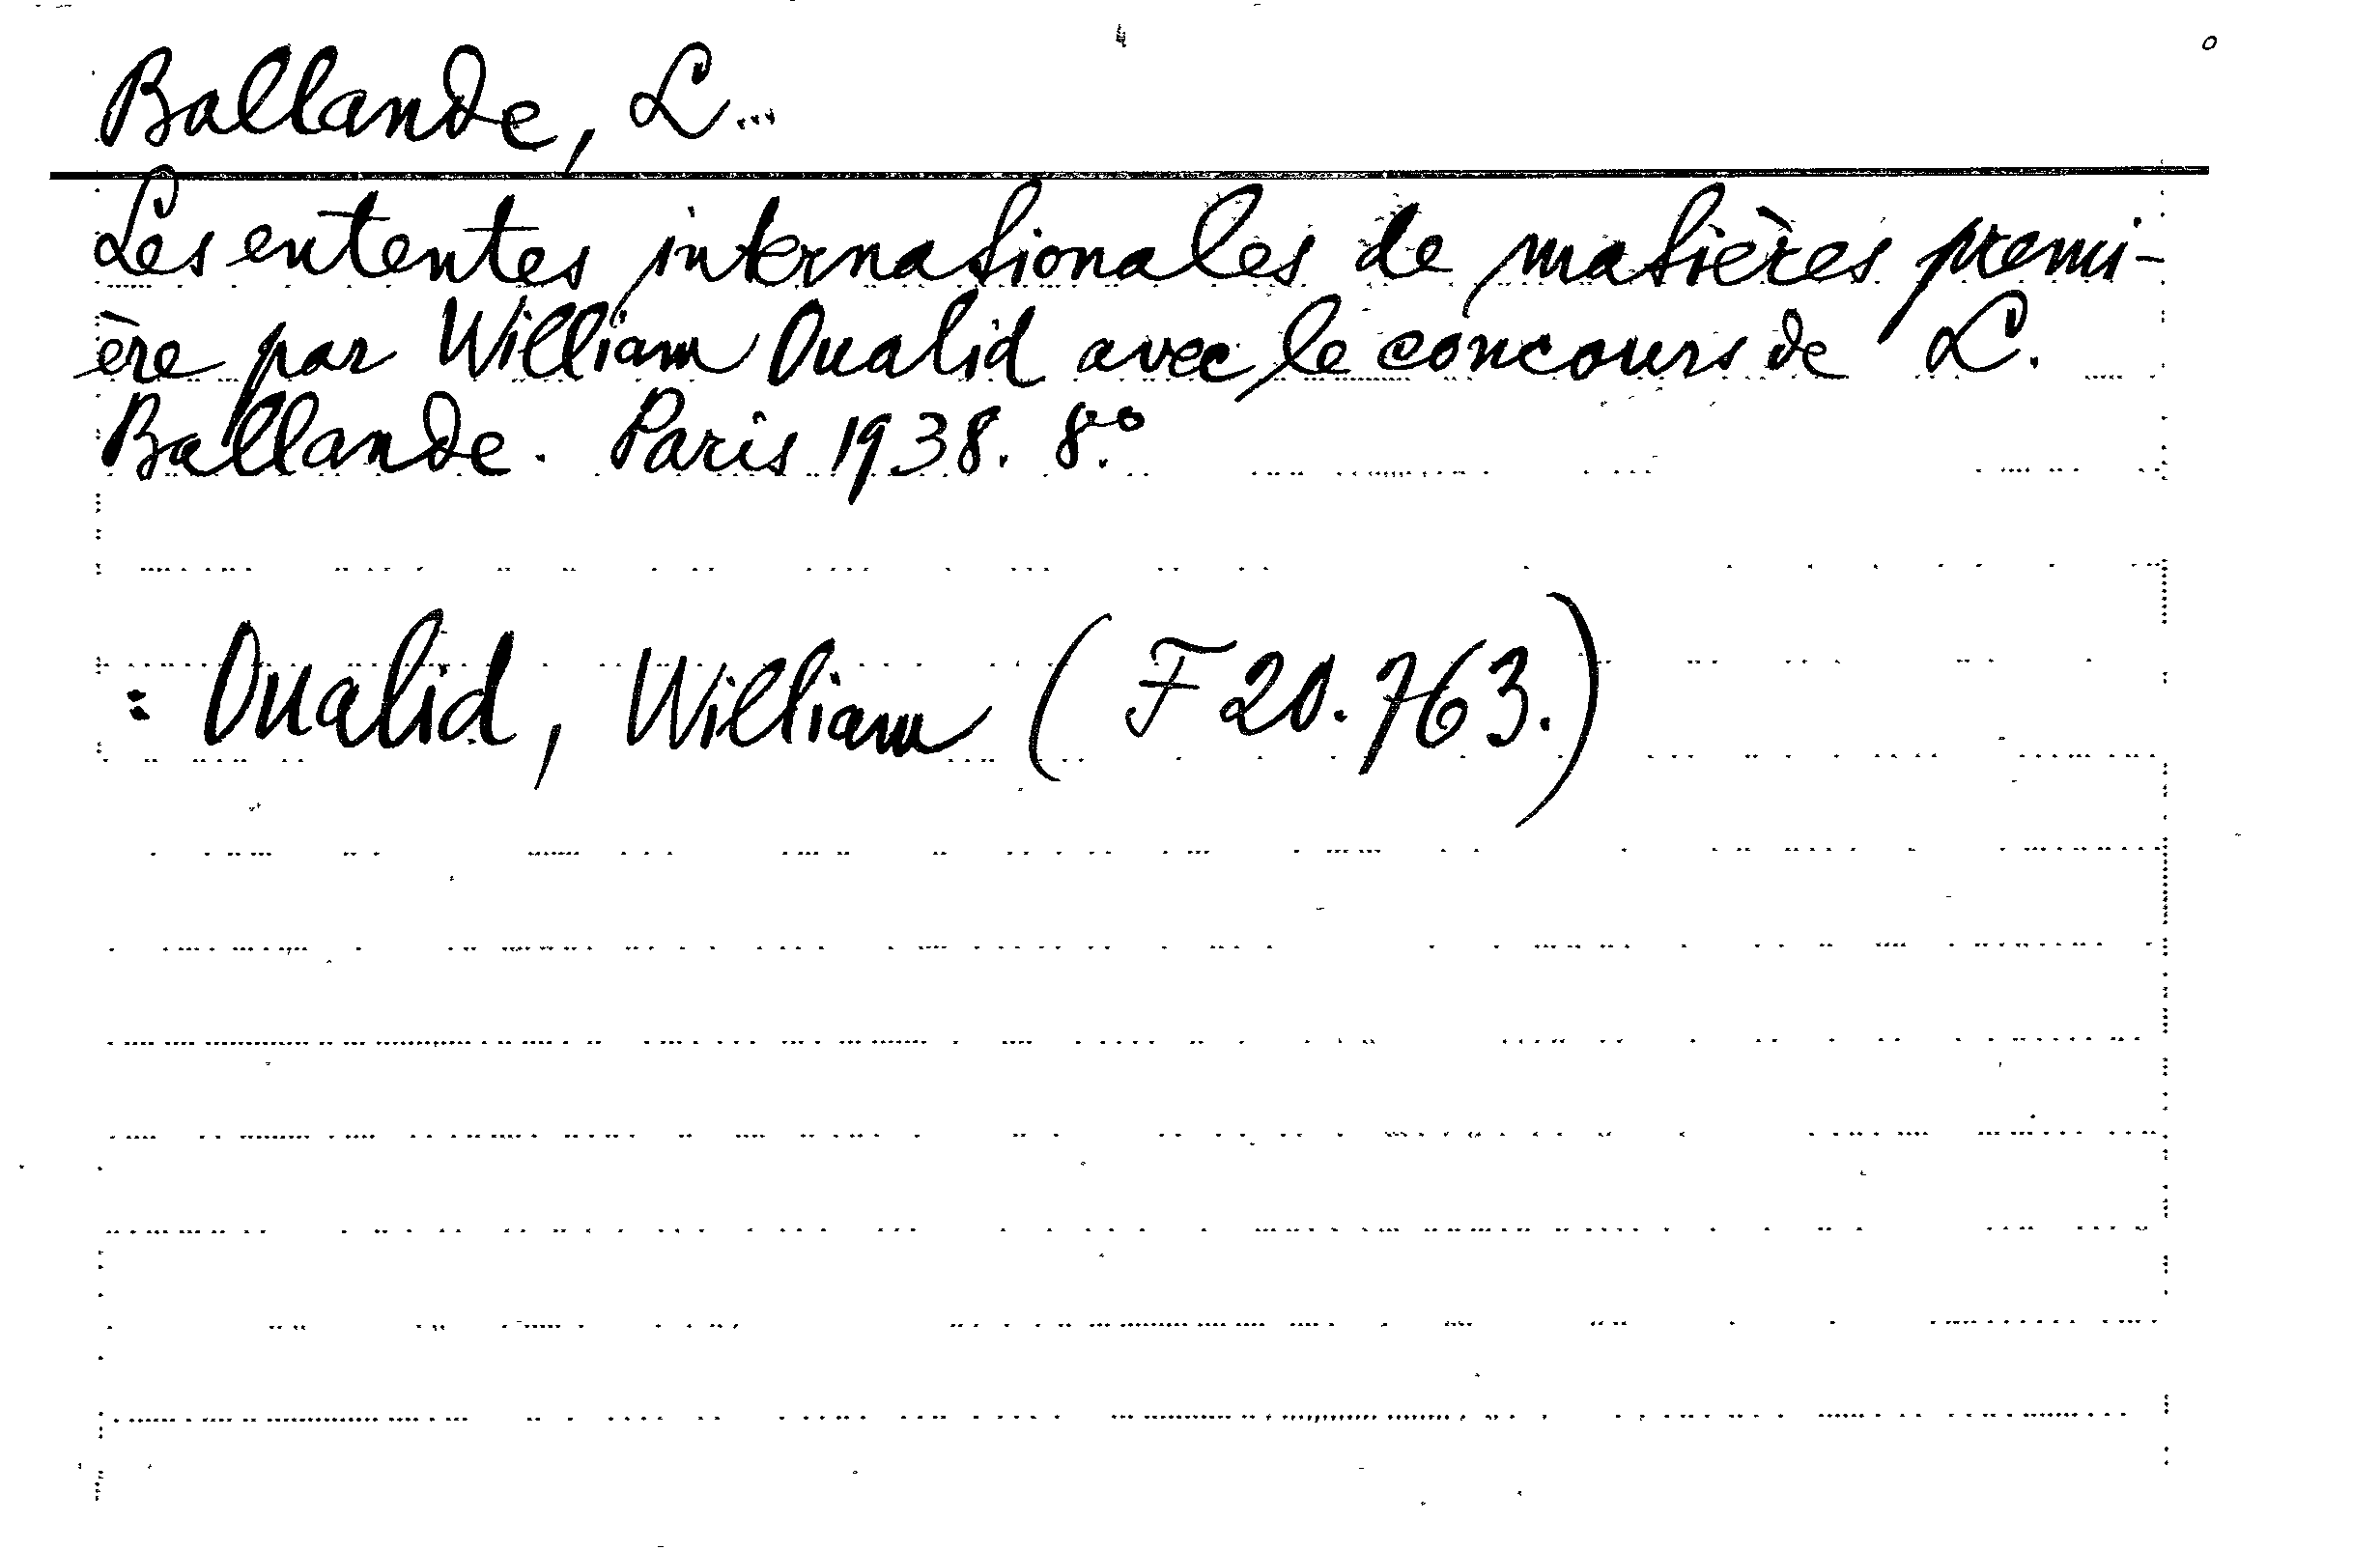 Ballande, L...
Les ententes internationales de matières premi-
ère par William Oualid avec le concours de L.
Ballande. Paris 1938. 8°.
: Oualid, William (F 20.763.)